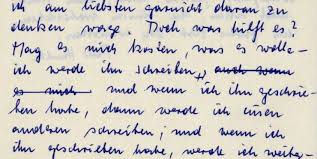 ich am liebsten garnicht daran zu
denken wage. Doch was hilft es?
Mag es mich kosten, was es wolle –
ich werde ihm schreiben, auch wenn
es mich und wenn ich ihm geschrie-
ben habe, dann werde ich einen
anderen schreiben; und wenn ich
ihm geschrieben habe, werde ich weiter-